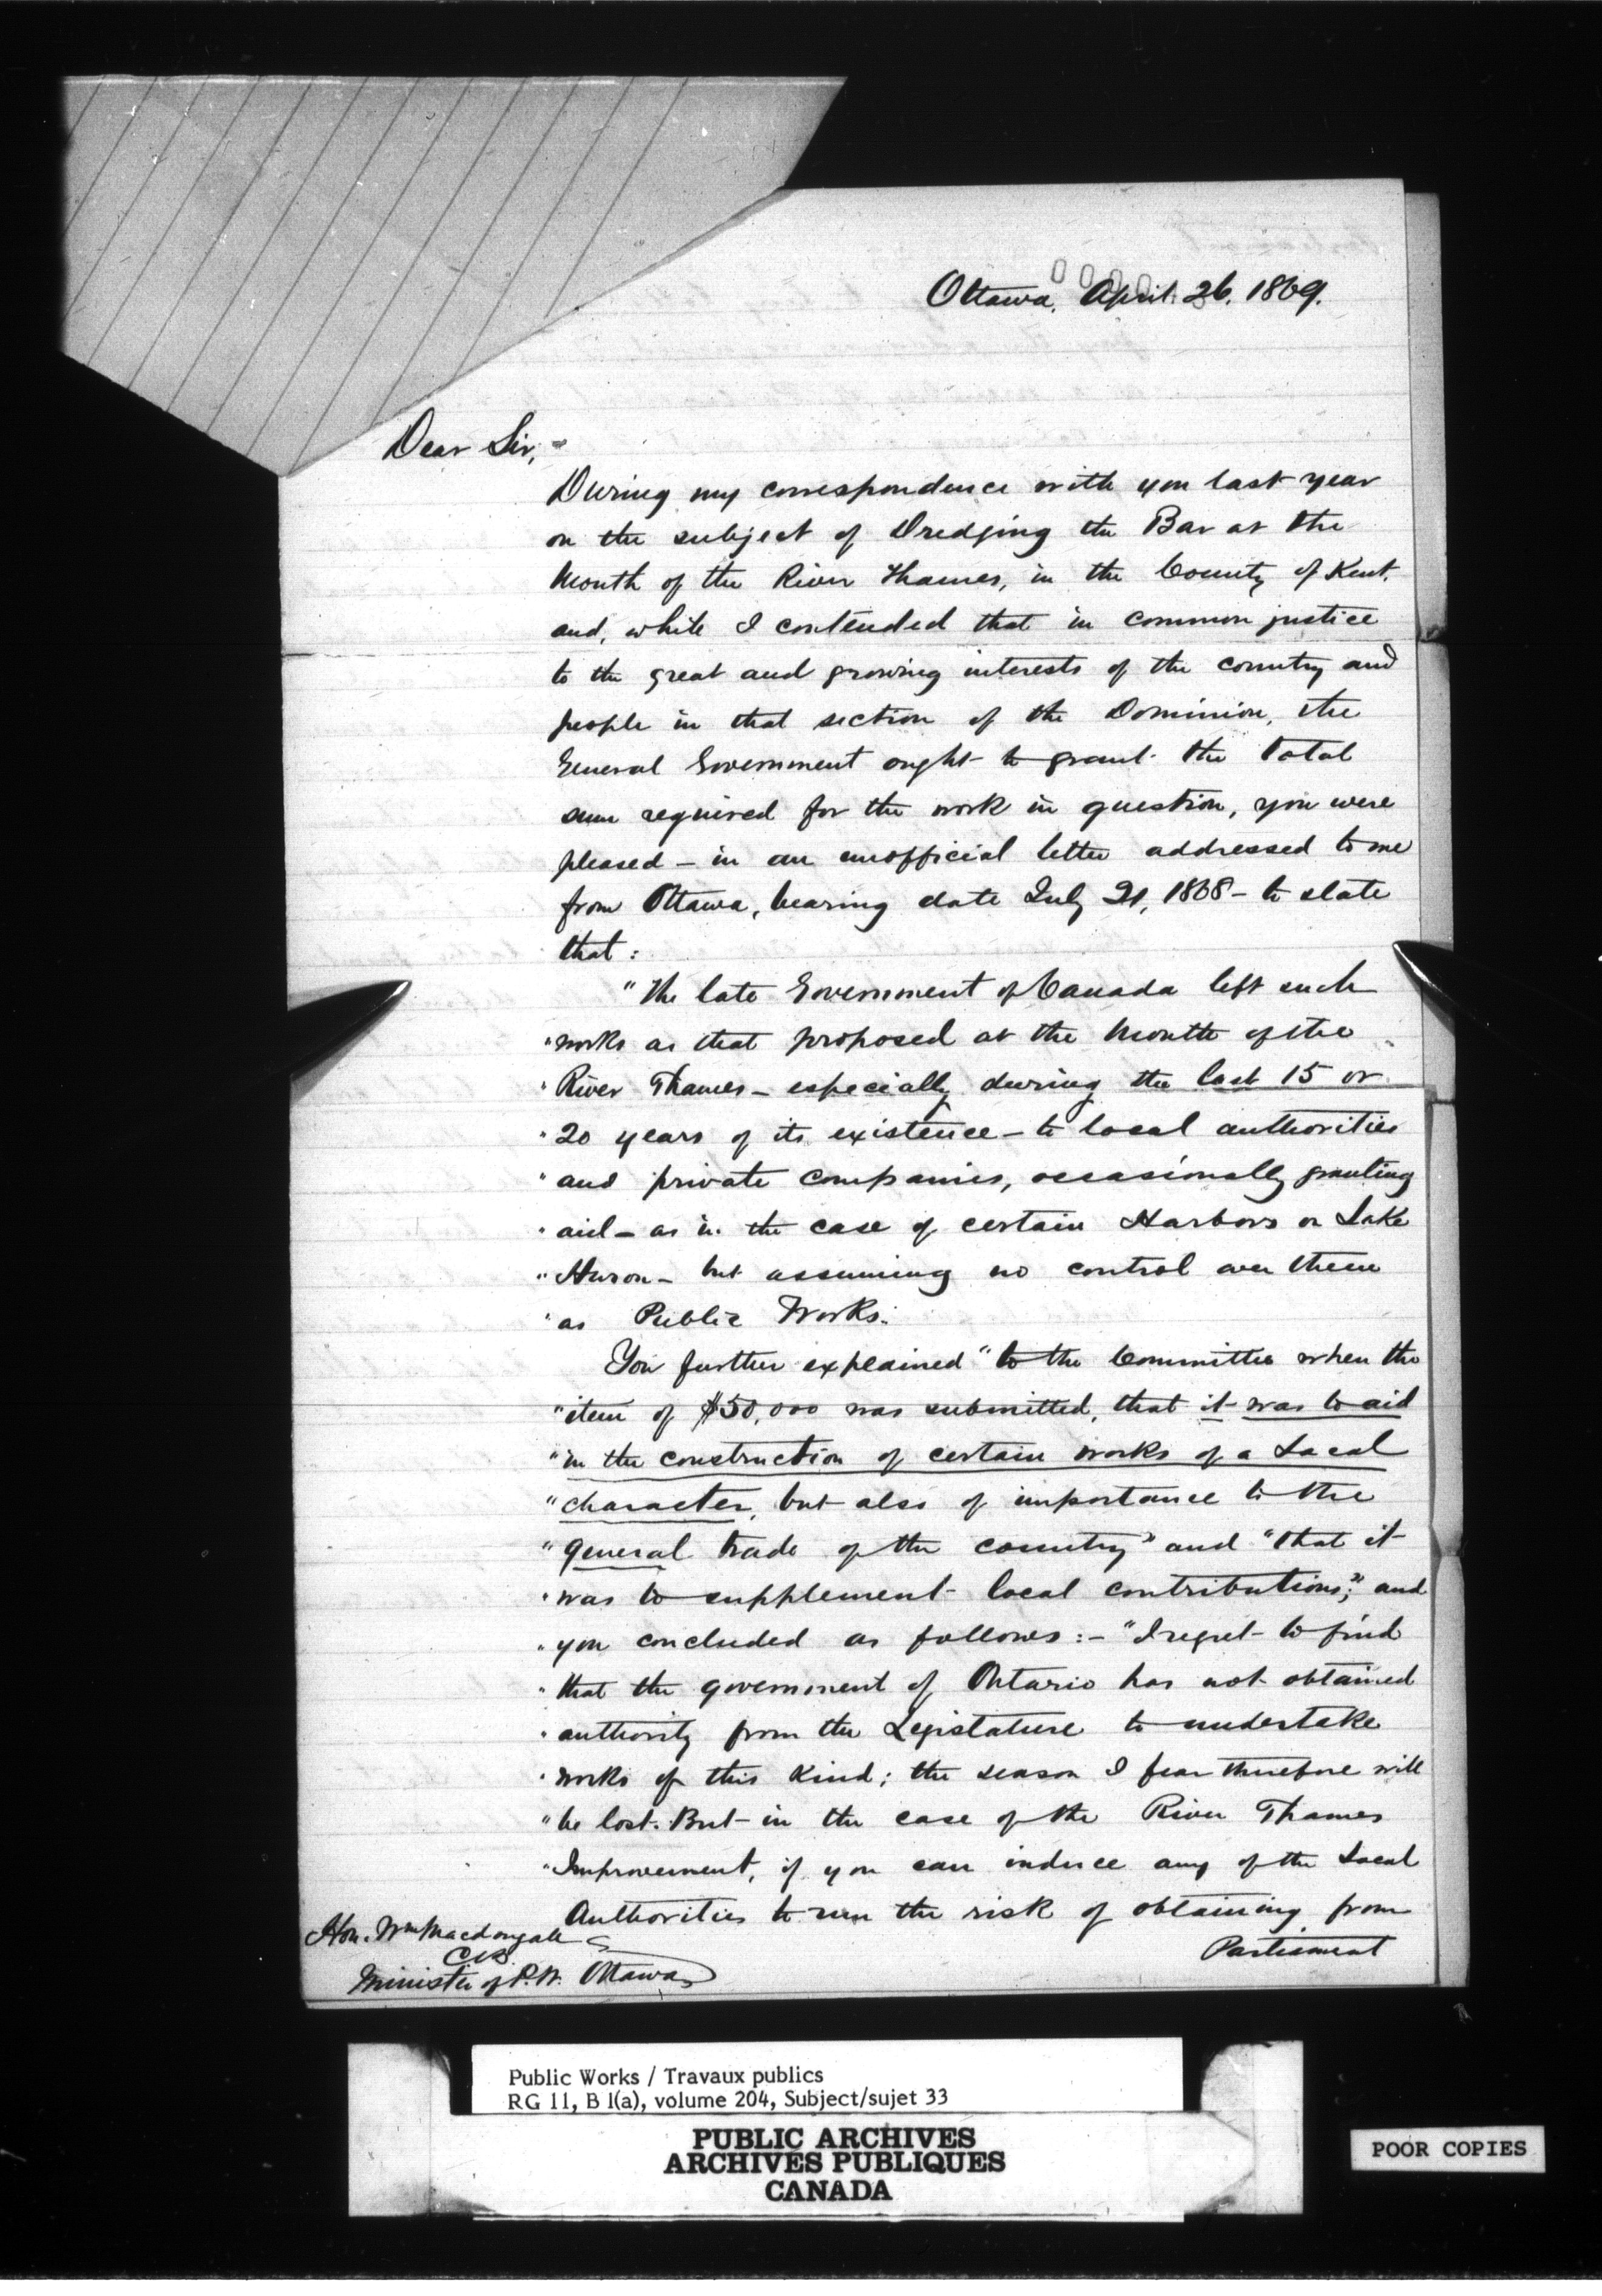 Ottawa, April. 26. 1869.
Dear Sir,
During my correspondence with you last year
on the subject of Dredging the Bar at the
Mouth of the River Thames, in the County of Kent,
and, while I contended that in common justice
to the great and growing interests of the country and
people in that section of the Dominion, the
General Government ought to grant the total
sum required for the work in question, you were
pleased – in an unofficial letter addressed to me
from Ottawa, bearing date July 21, 1868 – to state
that:
"The late Government of Canada left such
"works as that proposed at the Mouth of the
"River Thames – especially during the last 15 or
"20 years of its existence – to local authorities
"and private companies, occasionally granting
"aid – as in the case of certain Harbors on Lake
"Huron – but assuming no control over them
"as Public Works.
You further explained "to the Committee when the
"item of $50,000 was submitted, that it was to aid
"in the construction of certain works of a Local
"character, but also of importance to the
"general trade of the country" and "that it
"was to supplement local contributions;" and
"you concluded as follows: – "I regret to find
"that the government of Ontario has not obtained
"authority from the Legislature to undertake
"works of this kind; the season I fear therefore will
"be lost. But in the case of the River Thames
"Improvement, if you can induce any of the Local
Authorities to run the risk of obtaining from
Parliament
Hon. Wm Macdougall
C.B.
Minister of P.W. Ottawa
Public Works / Travaux publics
RG 11, B 1(a), volume 204, Subject/sujet 33
PUBLIC ARCHIVES
ARCHIVES PUBLIQUES
CANADA
POOR COPIES